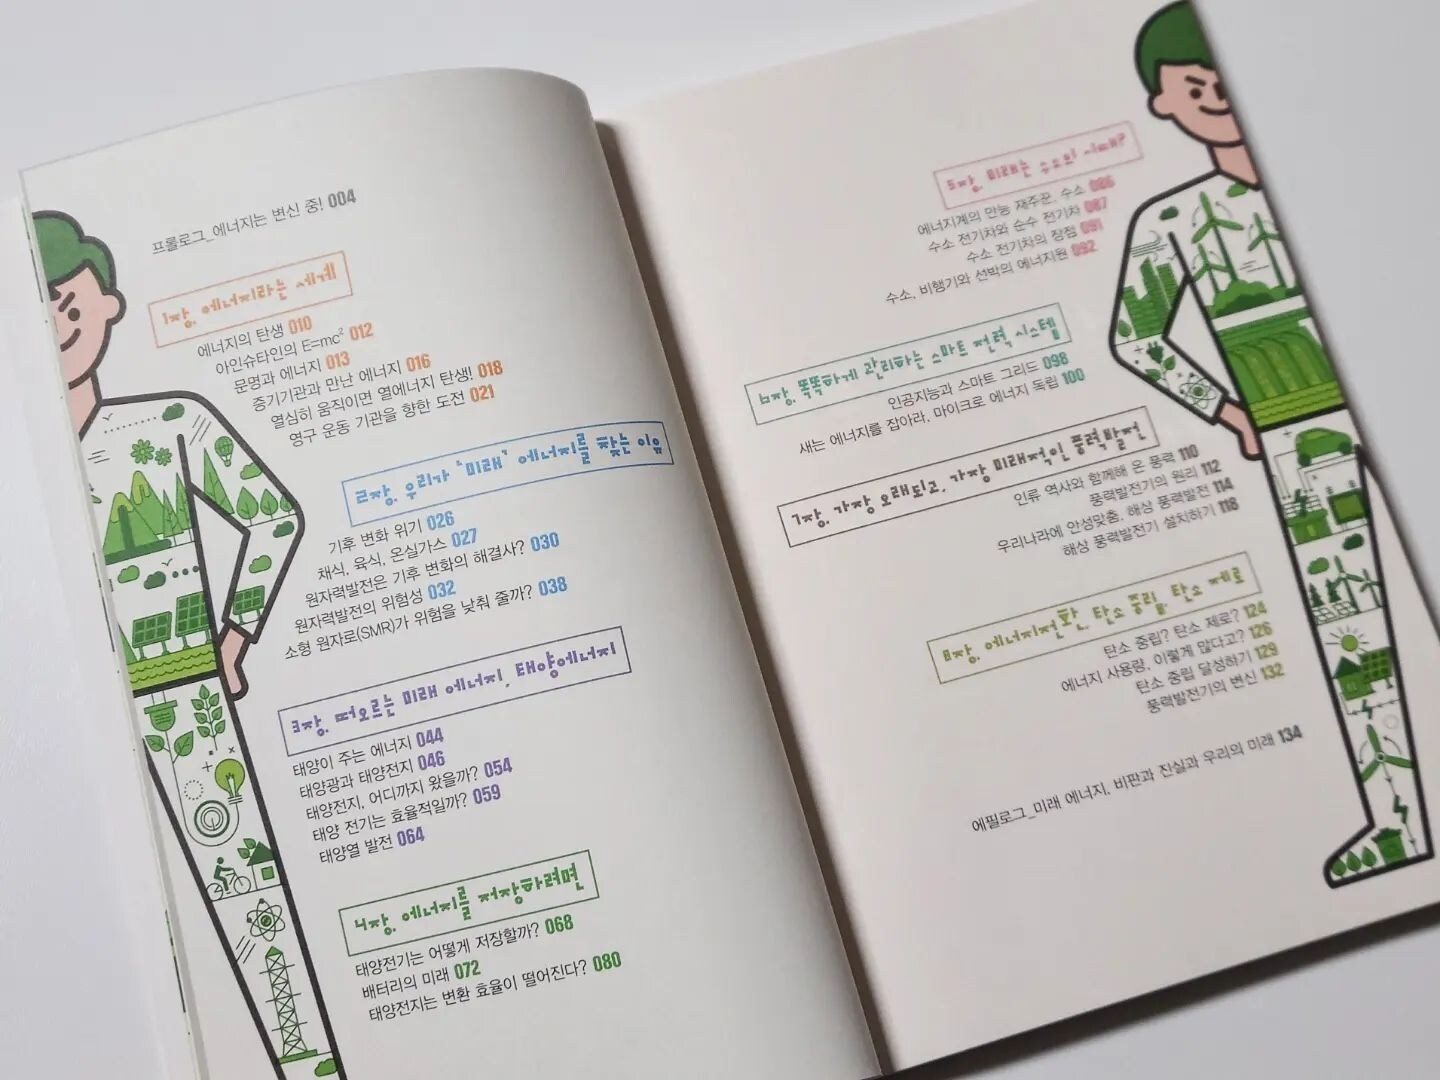 프롤로그_에너지는 변신 중! 004
1장. 에너지라는 세계
에너지의 탄생 010
아인슈타인의 E=mc² 012
문명과 에너지 013
증기기관과 만난 에너지 016
열심히 움직이면 열에너지 탄생! 018
영구 운동 기관을 향한 도전 021
2장. 우리가 '미래' 에너지를 찾는 이유
기후 변화 위기 026
채식, 육식, 온실가스 027
원자력발전은 기후 변화의 해결사? 030
원자력발전의 위험성 032
소형 원자로(SMR)가 위험을 낮춰 줄까? 038
3장. 떠오르는 미래 에너지, 태양에너지
태양이 주는 에너지 044
태양광과 태양전지 046
태양전지, 어디까지 왔을까? 054
태양 전기는 효율적일까? 059
태양열 발전 064
4장. 에너지를 저장하려면
태양전기는 어떻게 저장할까? 068
배터리의 미래 072
태양전지는 변환 효율이 떨어진다? 080
5장. 미래는 수소의 시대?
에너지계의 만능 재주꾼, 수소 086
수소 전기차와 순수 전기차 087
수소 전기차의 장점 091
수소, 비행기와 선박의 에너지원 092
6장. 똑똑하게 관리하는 스마트 전력 시스템
인공지능과 스마트 그리드 098
새는 에너지를 잡아라, 마이크로 에너지 독립 100
7장. 가장 오래되고, 가장 미래적인 풍력발전
인류 역사와 함께해 온 풍력 110
풍력발전기의 원리 112
우리나라에 안성맞춤, 해상 풍력발전 114
해상 풍력발전기 설치하기 118
8장. 에너지전환, 탄소 중립, 탄소 제로
탄소 중립? 탄소 제로? 124
에너지 사용량, 이렇게 많다고? 126
탄소 중립 달성하기 129
풍력발전기의 변신 132
에필로그_미래 에너지, 비판과 진실과 우리의 미래 134